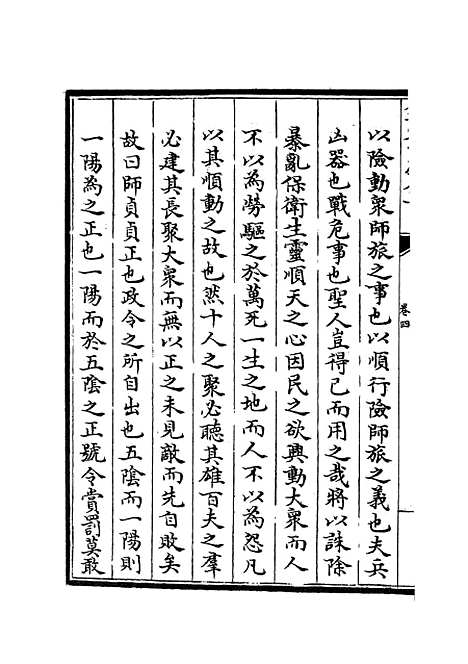 以險動衆師旅之事也以順行險師旅之義也夫兵
凶器也戰危事也聖人豈得已而用之哉將以誅除
暴亂保衛生靈順天之心因民之欲興動大衆而人
不以為勞驅之於萬死一生之地而人不以為怨凡
以其順動之故也然十人之聚必聽其雄百夫之羣
必建其長聚大衆而無以正之未見敵而先自敗矣
故曰師貞貞正也政令之所自出也五陰而一陽則
一陽為之正也一陽而於五陰之正號令賞罰莫敢
卷四